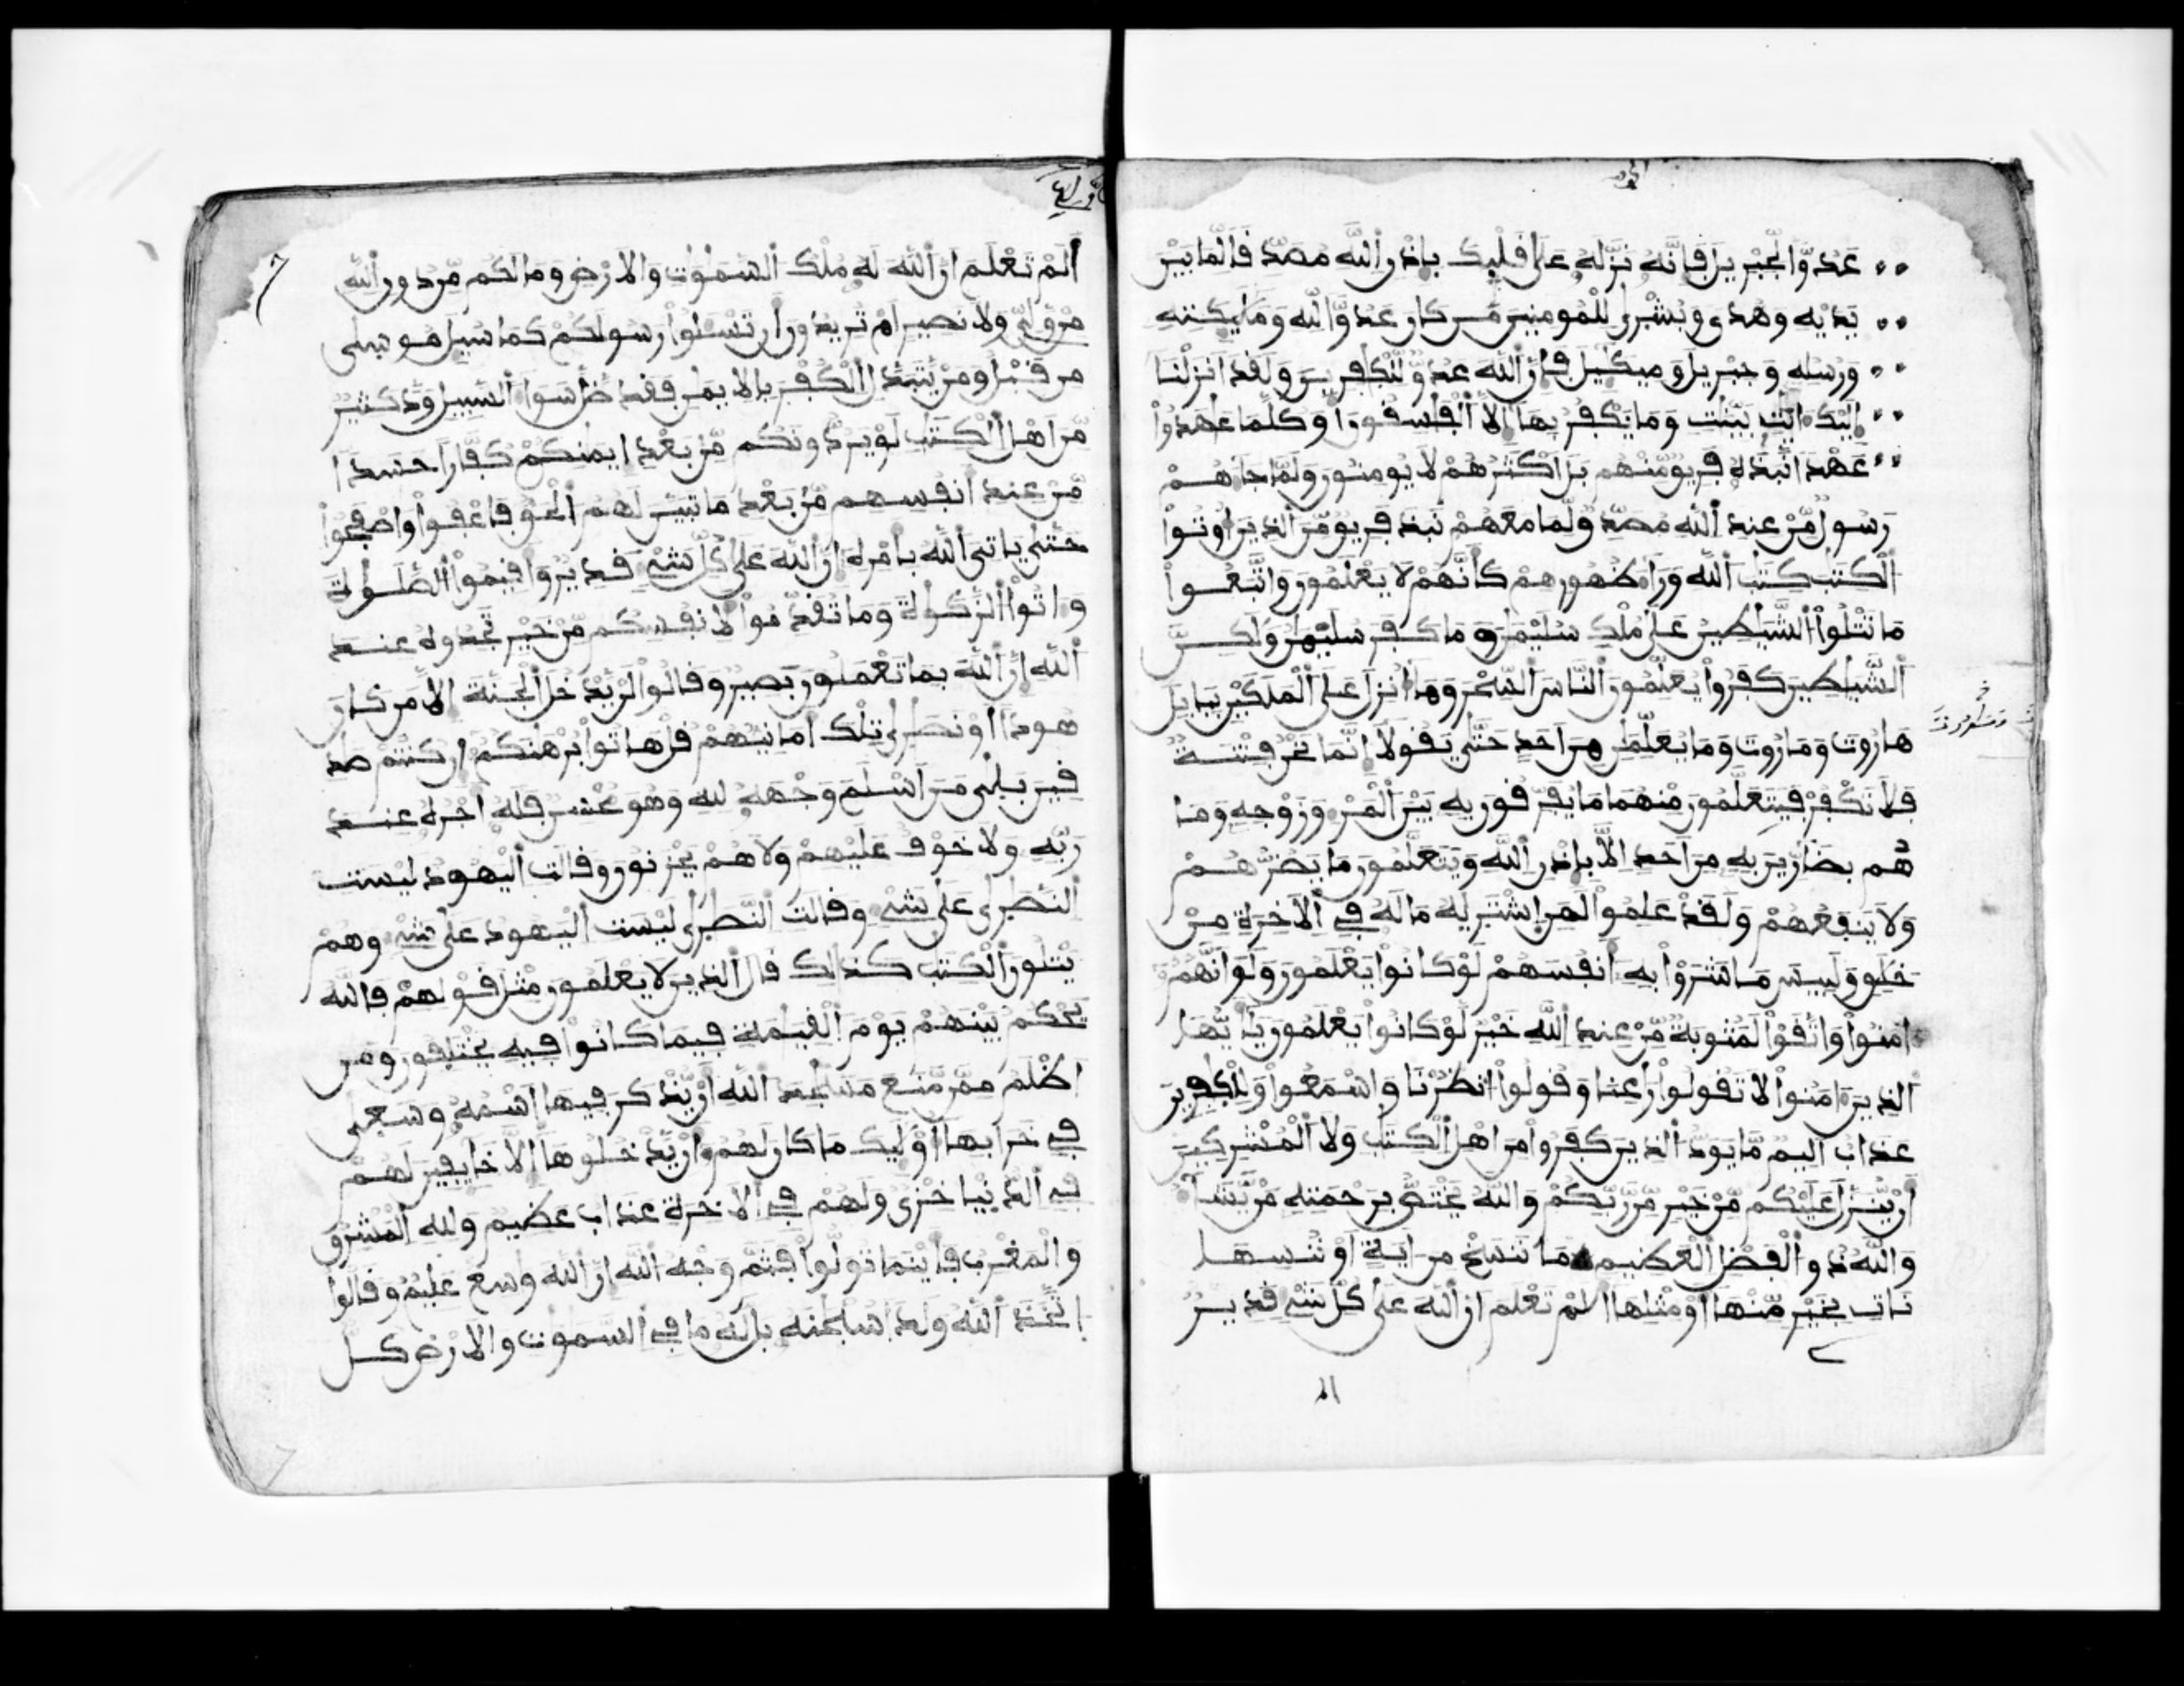 عَدُوّٗا لِّجِبْرِيلَ فَإِنَّهُۥ نَزَّلَهُۥ عَلَىٰ قَلْبِكَ بِإِذْنِ ٱللَّهِ مُصَدِّقٗا لِّمَا بَيْنَ
يَدَيْهِ وَهُدٗى وَبُشْرَىٰ لِلْمُومِنِينَ مَن كَانَ عَدُوّٗا لِّلَّهِ وَمَلَٰٓئِكَتِهِ
وَرُسُلِهِ وَجِبْرِيلَ وَمِيكَٰٓئِلَ فَإِنَّ ٱللَّهَ عَدُوّٞ لِّلْكَٰفِرِينَ وَلَقَدَ انزَلْنَا
إِلَيْكَ ءَايَٰتِۭ بَيِّنَٰتٖ وَمَا يَكْفُرُ بِهَا إِلَّا ٱلْفَٰسِقُونَ أَوَكُلَّمَا عَٰهَدُوا۟
عَهْدٗا نَّبَذَهُۥ فَرِيقٞ مِّنْهُم بَلَ اكْثَرُهُمْ لَا يُومِنُونَ وَلَمَّا جَآءَهُمْ
رَسُولٞ مِّنْ عِندِ ٱللَّهِ مُصَدِّقٞ لِّمَا مَعَهُمْ نَبَذَ فَرِيقٞ مِّنَ ٱلذِينَ أُوتُوا۟
ٱلْكِتَٰبَ كِتَٰبَ ٱللَّهِ وَرَآءَ ظُهُورِهِمْ كَأَنَّهُمْ لَا يَعْلَمُونَ وَاتَّبَعُوا۟
مَا تَتْلُوا۟ ٱلشَّيَٰطِينُ عَلَىٰ مُلْكِ سُلَيْمَٰنَ وَمَا كَفَرَ سُلَيْمَٰنُ وَلَٰكِنَّ
ٱلشَّيَٰطِينَ كَفَرُوا۟ يُعَلِّمُونَ ٱلنَّاسَ ٱلسِّحْرَ وَمَا أُنزِلَ عَلَى ٱلْمَلَكَيْنِ بِبَابِلَ
هَارُوتَ وَمَارُوتَ وَمَا يُعَلِّمَٰنِ مِنَ احَدٍ حَتَّىٰ يَقُولَا إِنَّمَا نَحْنُ فِتْنَةٞ
فَلَا تَكْفُرْ فَيَتَعَلَّمُونَ مِنْهُمَا مَا يُفَرِّقُونَ بِهِ بَيْنَ ٱلْمَرْءِ وَزَوْجِهِ وَمَا
هُم بِضَآرِّينَ بِهِ مِنَ احَدٍ إِلَّا بِإِذْنِ ٱللَّهِ وَيَتَعَلَّمُونَ مَا يَضُرُّهُمْ
وَلَا يَنفَعُهُمْ وَلَقَدْ عَلِمُوا۟ لَمَنِ ٱشْتَرَىٰهُ مَا لَهُ فِي ٱلَاخِرَةِ مِنْ
خَلَٰقٖ وَلَبِيسَ مَا شَرَوْا۟ بِهِ أَنفُسَهُمْ لَوْ كَانُوا۟ يَعْلَمُونَ وَلَوَ انَّهُمُ
ءَامَنُوا۟ وَاتَّقَوْا۟ لَمَثُوبَةٞ مِّنْ عِندِ ٱللَّهِ خَيْرٞ لَّوْ كَانُوا۟ يَعْلَمُونَ يَٰٓأَيُّهَا
ٱلذِينَ ءَامَنُوا۟ لَا تَقُولُوا۟ رَٰعِنَا وَقُولُوا۟ انظُرْنَا وَاسْمَعُوا۟ وَلِلْكَٰفِرِينَ
عَذَابٌ اَلِيمٞ مَّا يَوَدُّ ٱلذِينَ كَفَرُوا۟ مِنَ اهْلِ ٱلْكِتَٰبِ وَلَا ٱلْمُشْرِكِينَ
أَنْ يُّنَزَّلَ عَلَيْكُم مِّنْ خَيْرٖ مِّن رَّبِّكُمْ وَاللَّهُ يَخْتَصُّ بِرَحْمَتِهِ مَنْ يَّشَآءُ
وَاللَّهُ ذُو ٱلْفَضْلِ ٱلْعَظِيمِ مَا نَنسَخْ مِنَ ايَةٍ أَوْ نُنسِهَا
نَاتِ بِخَيْرٖ مِّنْهَا أَوْ مِثْلِهَا أَلَمْ تَعْلَمَ أنَّ ٱللَّهَ عَلَىٰ كُلِّ شَيْءٖ قَدِيرٌ
أَلَمْ تَعْلَمَ أَنَّ ٱللَّهَ لَهُ مُلْكُ ٱلسَّمَٰوَٰتِ وَالَارْضِ وَمَا لَكُم مِّن دُونِ ٱللَّهِ
مِنْ وَّلِيّٖ وَلَا نَصِيرٍ اَمْ تُرِيدُونَ أَن تَسْـَٔلُوا۟ رَسُولَكُمْ كَمَا سُئِلَ مُوسَىٰ
مِن قَبْلُ وَمَنْ يَّتَبَدَّلِ ٱلْكُفْرَ بِالِايمَٰنِ فَقَد ضَّلَّ سَوَآءَ ٱلسَّبِيلِ وَدَّ كَثِيرٞ
مِّنَ اهْلِ ٱلْكِتَٰبِ لَوْ يَرُدُّونَكُم مِّنۢ بَعْدِ إِيمَٰنِكُمْ كُفَّاراً حَسَداٗ
مِّنْ عِندِ أَنفُسِهِم مِّنۢ بَعْدِ مَا تَبَيَّنَ لَهُمُ ٱلْحَقُّ فَاعْفُوا۟ وَاصْفَحُوا۟
حَتَّىٰ يَاتِيَ ٱللَّهُ بِأَمْرِهِ إِنَّ ٱللَّهَ عَلَىٰ كُلِّ شَيْءٖ قَدِيرٞ وَأَقِيمُوا۟ ٱلصَّلَوٰةَ
وَءَاتُوا۟ ٱلزَّكَوٰةَ وَمَا تُقَدِّمُوا۟ لِأَنفُسِكُم مِّنْ خَيْرٖ تَجِدُوهُ عِندَ
ٱللَّهِ إِنَّ ٱللَّهَ بِمَا تَعْمَلُونَ بَصِيرٞ وَقَالُوا۟ لَنْ يَّدْخُلَ ٱلْجَنَّةَ إِلَّا مَن كَانَ
هُوداً أَوْ نَصَٰرَىٰ تِلْكَ أَمَانِيُّهُمْ قُلْ هَاتُوا۟ بُرْهَٰنَكُمُ إِن كُنتُمْ صَٰدِ
قِينَ بَلَىٰ مَنَ اسْلَمَ وَجْهَهُ لِلَّهِ وَهُوَ مُحْسِنٞ فَلَهُ أَجْرُهُ عِندَ
رَبِّهِ وَلَا خَوْفٌ عَلَيْهِمْ وَلَا هُمْ يَحْزَنُونَ وَقَالَتِ ٱلْيَهُودُ لَيْسَتِ
ٱلنَّصَٰرَىٰ عَلَىٰ شَيْءٖ وَقَالَتِ ٱلنَّصَٰرَىٰ لَيْسَتِ ٱلْيَهُودُ عَلَىٰ شَيْءٖ وَهُمْ
يَتْلُونَ ٱلْكِتَٰبَ كَذَٰلِكَ قَالَ ٱلذِينَ لَا يَعْلَمُونَ مِثْلَ قَوْلِهِمْ فَاللَّهُ
يَحْكُمُ بَيْنَهُمْ يَوْمَ ٱلْقِيَٰمَةِ فِيمَا كَانُوا۟ فِيهِ يَخْتَلِفُونَ وَمَنَ
اظْلَمُ مِمَّن مَّنَعَ مَسَٰجِدَ ٱللَّهِ أَنْ يُّذْكَرَ فِيهَا ٱسْمُهُ وَسَعَىٰ
فِي خَرَابِهَا أُو۟لَٰٓئِكَ مَا كَانَ لَهُمُ أَنْ يَّدْخُلُوهَا إِلَّا خَآئِفِينَ لَهُمْ
فِي ٱلدُّنْيَا خِزْيٞ وَلَهُمْ فِي ٱلَاخِرَةِ عَذَابٌ عَظِيمٞ وَلِلَّهِ ٱلْمَشْرِقُ
وَالْمَغْرِبُ فَأَيْنَمَا تُوَلُّوا۟ فَثَمَّ وَجْهُ ٱللَّهِ إِنَّ ٱللَّهَ وَٰسِعٌ عَلِيمٞ وَقَالُوا۟
ٱتَّخَذَ ٱللَّهُ وَلَداٗ سُبْحَٰنَهُ بَل لَّهُ مَا فِي ٱلسَّمَٰوَٰتِ وَالَارْضِ كُلّٞ